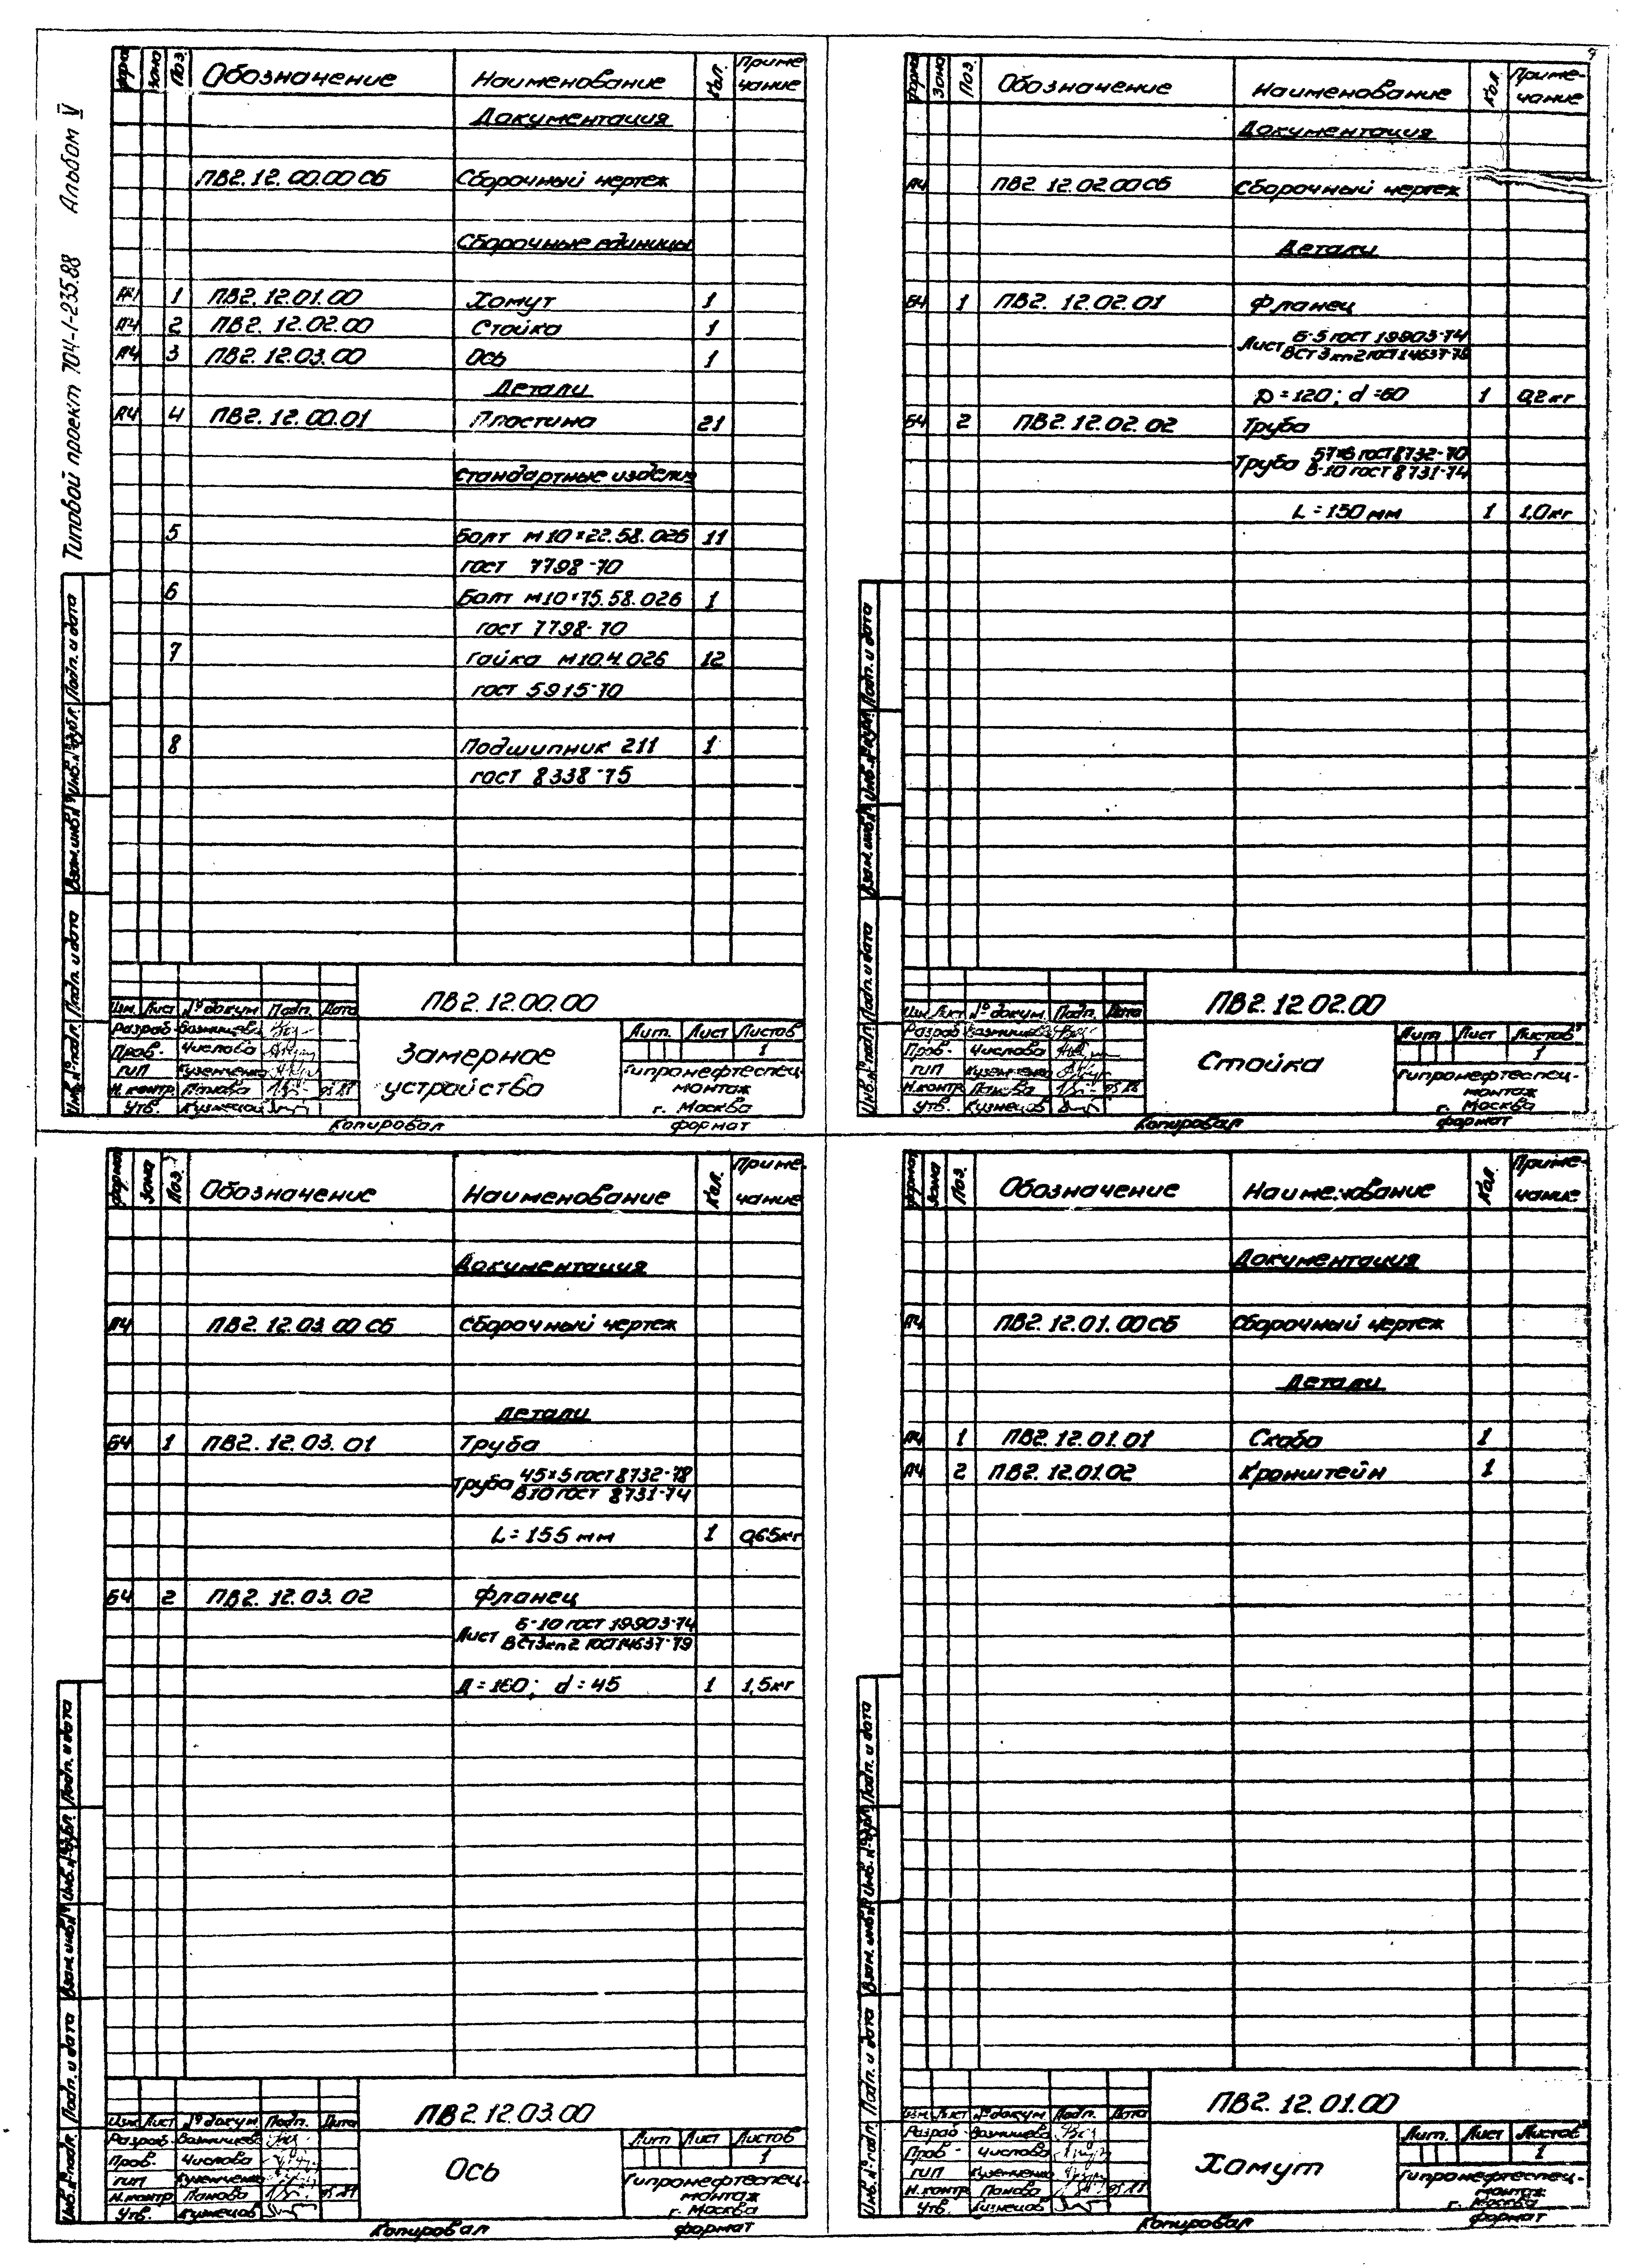 Типовой проект 704-1-235.88 Альбом V
Формат Зона Поз. Обозначение Наименование Кол. Приме-
чание
Документация
ПВ2.12.00.00 СБ Сборочный чертеж
Сборочные единицы
1 ПВ2.12.01.00 Хомут 1
А4 2 ПВ2.12.02.00 Стойка 1
А4 3 ПВ2.12.03.00 Ось 1
Детали
А4 4 ПВ2.12.00.01 Пластина 21
Стандартные изделия
5 Болт М10×22.58.026 11
ГОСТ 7798-70
6 Болт М10×75.58.026 1
ГОСТ 7798-70
7 Гайка М10.4.026 12
ГОСТ 5915-70
8 Подшипник 211 1
ГОСТ 8338-75
Инв.№подл. Подп. и дата Взам.инв.№ Инв.№дубл. Подп. и дата
ПВ2.12.00.00
Изм. Лист № докум. Подп. Дата
Разраб.
Пров. Числова
ГИП Кузенченко
Н.контр. Панова
Утв. Кузнецов
Замерное
устройство
Лит. Лист Листов
1
Гипронефтеспец-
монтаж
г. Москва
Копировал Формат
Формат Зона Поз. Обозначение Наименование Кол. Приме-
чание
Документация
А4 ПВ2.12.02.00 СБ Сборочный чертеж
Детали
Б4 1 ПВ2.12.02.01 Фланец
Лист Б-5 ГОСТ 19903-74
ВСТ3кп2 ГОСТ 14637-79
D=120; d=60 1 0,2кг
Б4 2 ПВ2.12.02.02 Труба
Труба 57×6 ГОСТ 8732-70
В-10 ГОСТ 8731-74
L=150 мм 1 1,0кг
Инв.№подл. Подп. и дата Взам.инв.№ Инв.№дубл. Подп. и дата
ПВ2.12.02.00
Изм. Лист № докум. Подп. Дата
Разраб.
Пров. Числова
ГИП Кузенченко
Н.контр. Панова
Утв. Кузнецов
Стойка
Лит. Лист Листов
1
Гипронефтеспец-
монтаж
г. Москва
Копировал Формат
Формат Зона Поз. Обозначение Наименование Кол. Приме-
чание
Документация
А4 ПВ2.12.03.00 СБ Сборочный чертеж
Детали
Б4 1 ПВ2.12.03.01 Труба
Труба 45×5 ГОСТ 8732-78
В10 ГОСТ 8731-74
L=155 мм 1 0,65кг
Б4 2 ПВ2.12.03.02 Фланец
Лист Б-10 ГОСТ 19903-74
ВСТ3кп2 ГОСТ 14637-79
Д=160; d=45 1 1,5кг
Инв.№подл. Подп. и дата Взам.инв.№ Инв.№дубл. Подп. и дата
ПВ2.12.03.00
Изм. Лист № докум. Подп. Дата
Разраб.
Пров. Числова
ГИП Кузенченко
Н.контр. Панова
Утв. Кузнецов
Ось
Лит. Лист Листов
1
Гипронефтеспец-
монтаж
г. Москва
Копировал Формат
Формат Зона Поз. Обозначение Наименование Кол. Приме-
чание
Документация
А4 ПВ2.12.01.00 СБ Сборочный чертеж
Детали
А4 1 ПВ2.12.01.01 Скоба 1
А4 2 ПВ2.12.01.02 Кронштейн 1
Инв.№подл. Подп. и дата Взам.инв.№ Инв.№дубл. Подп. и дата
ПВ2.12.01.00
Изм. Лист № докум. Подп. Дата
Разраб.
Пров. Числова
ГИП Кузенченко
Н.контр. Панова
Утв. Кузнецов
Хомут
Лит. Лист Листов
1
Гипронефтеспец-
монтаж
г. Москва
Копировал Формат